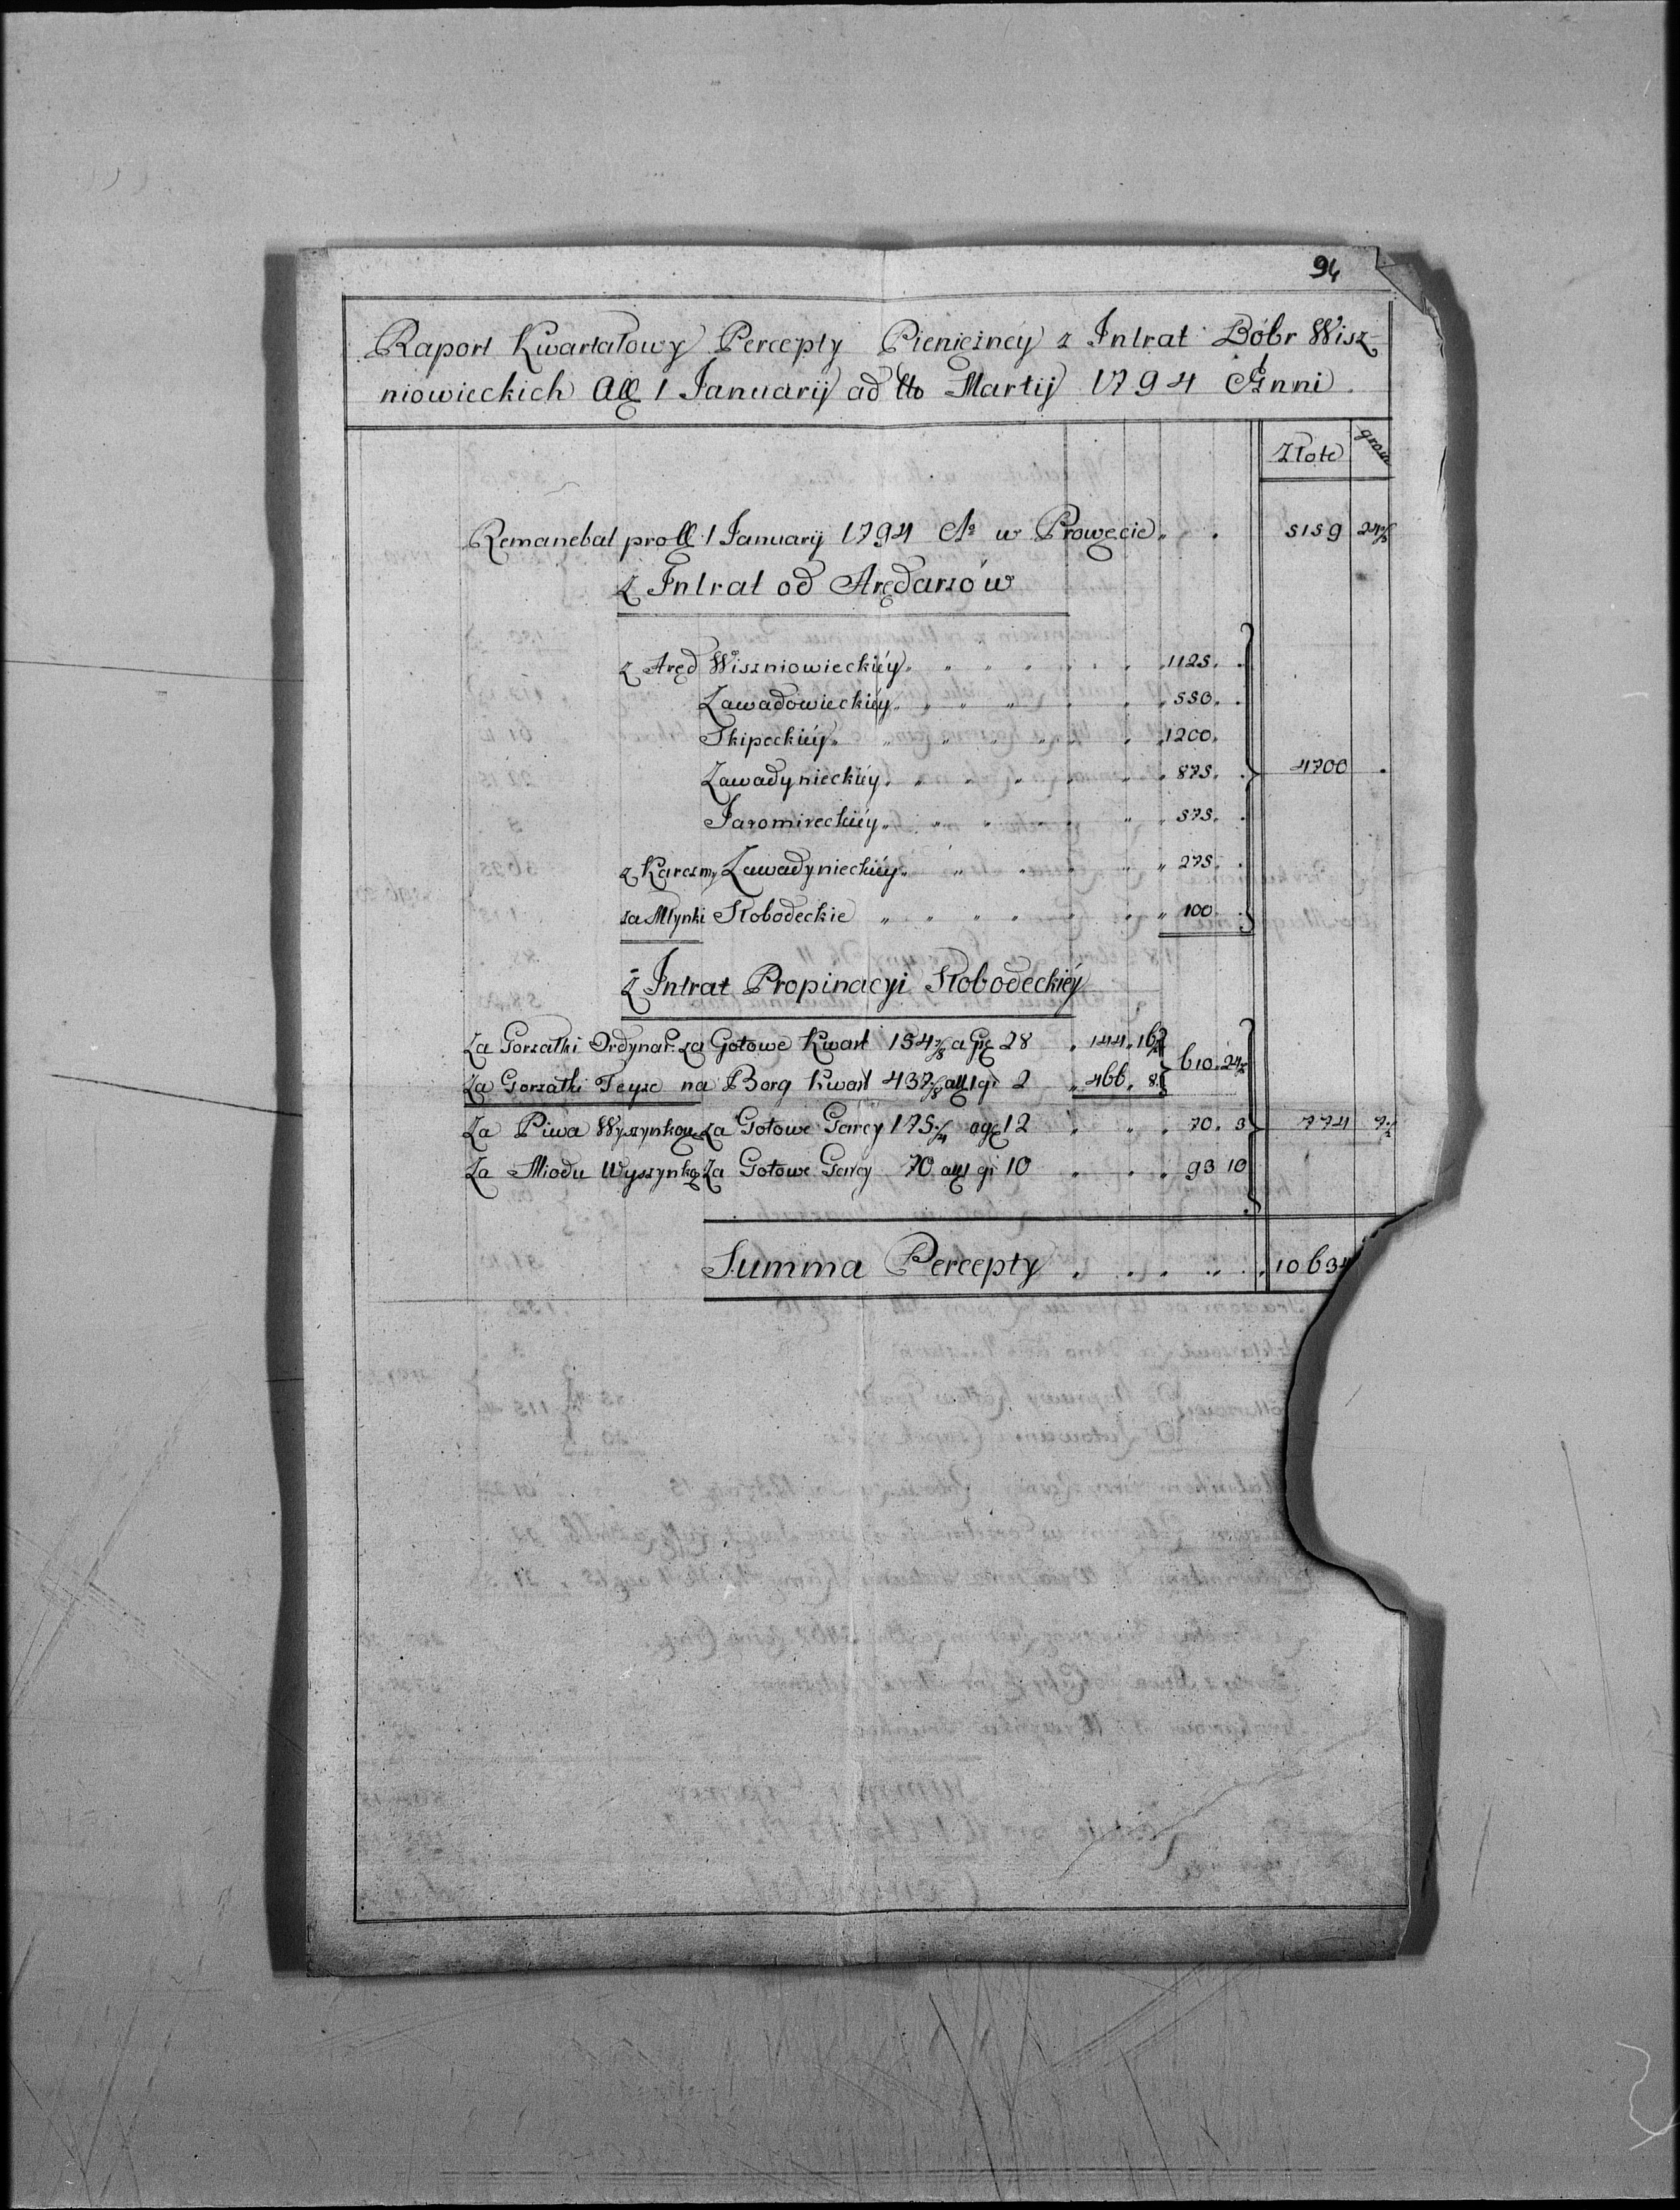 94
Raport Kwartałowy Percepty Pieniężney z Intrat Dóbr Wisz-
niowieckich a 1 Januarij ad Martij 1794 Anni
Złote grosze
Remanebat pro 1 Januarij 1794 Ao w Prowęcie 5159 24
Z Intrat od Arędarzów
z Aręd Wiszniowieckiéy 1125.
Zawadowieckiéy 550.
Skipeckiéy 1200.
Zawadynieckiéy 875. 4700
Jaromireckiéy 575.
z Karczmy Zawadynieckiéy 275.
za Młynki Słobodeckie 100.
Z Intrat Propinacyi Słobodeckiéy
Za Gorzałki Ordynar: za Gotowe Kwart 154 a gr 28 144. 16
610. 24
Za Gorzałki Teyże na Borg Kwart 437 gr 2 466. 8
Za Piwa Wyszynkow. Za Gotowe Garcy 175 a gr 12 70. 3 774 7
Za Miodu Wyszynko. Za Gotowe Garcy 70 gr 10 93 10
Summa Percepty 10634